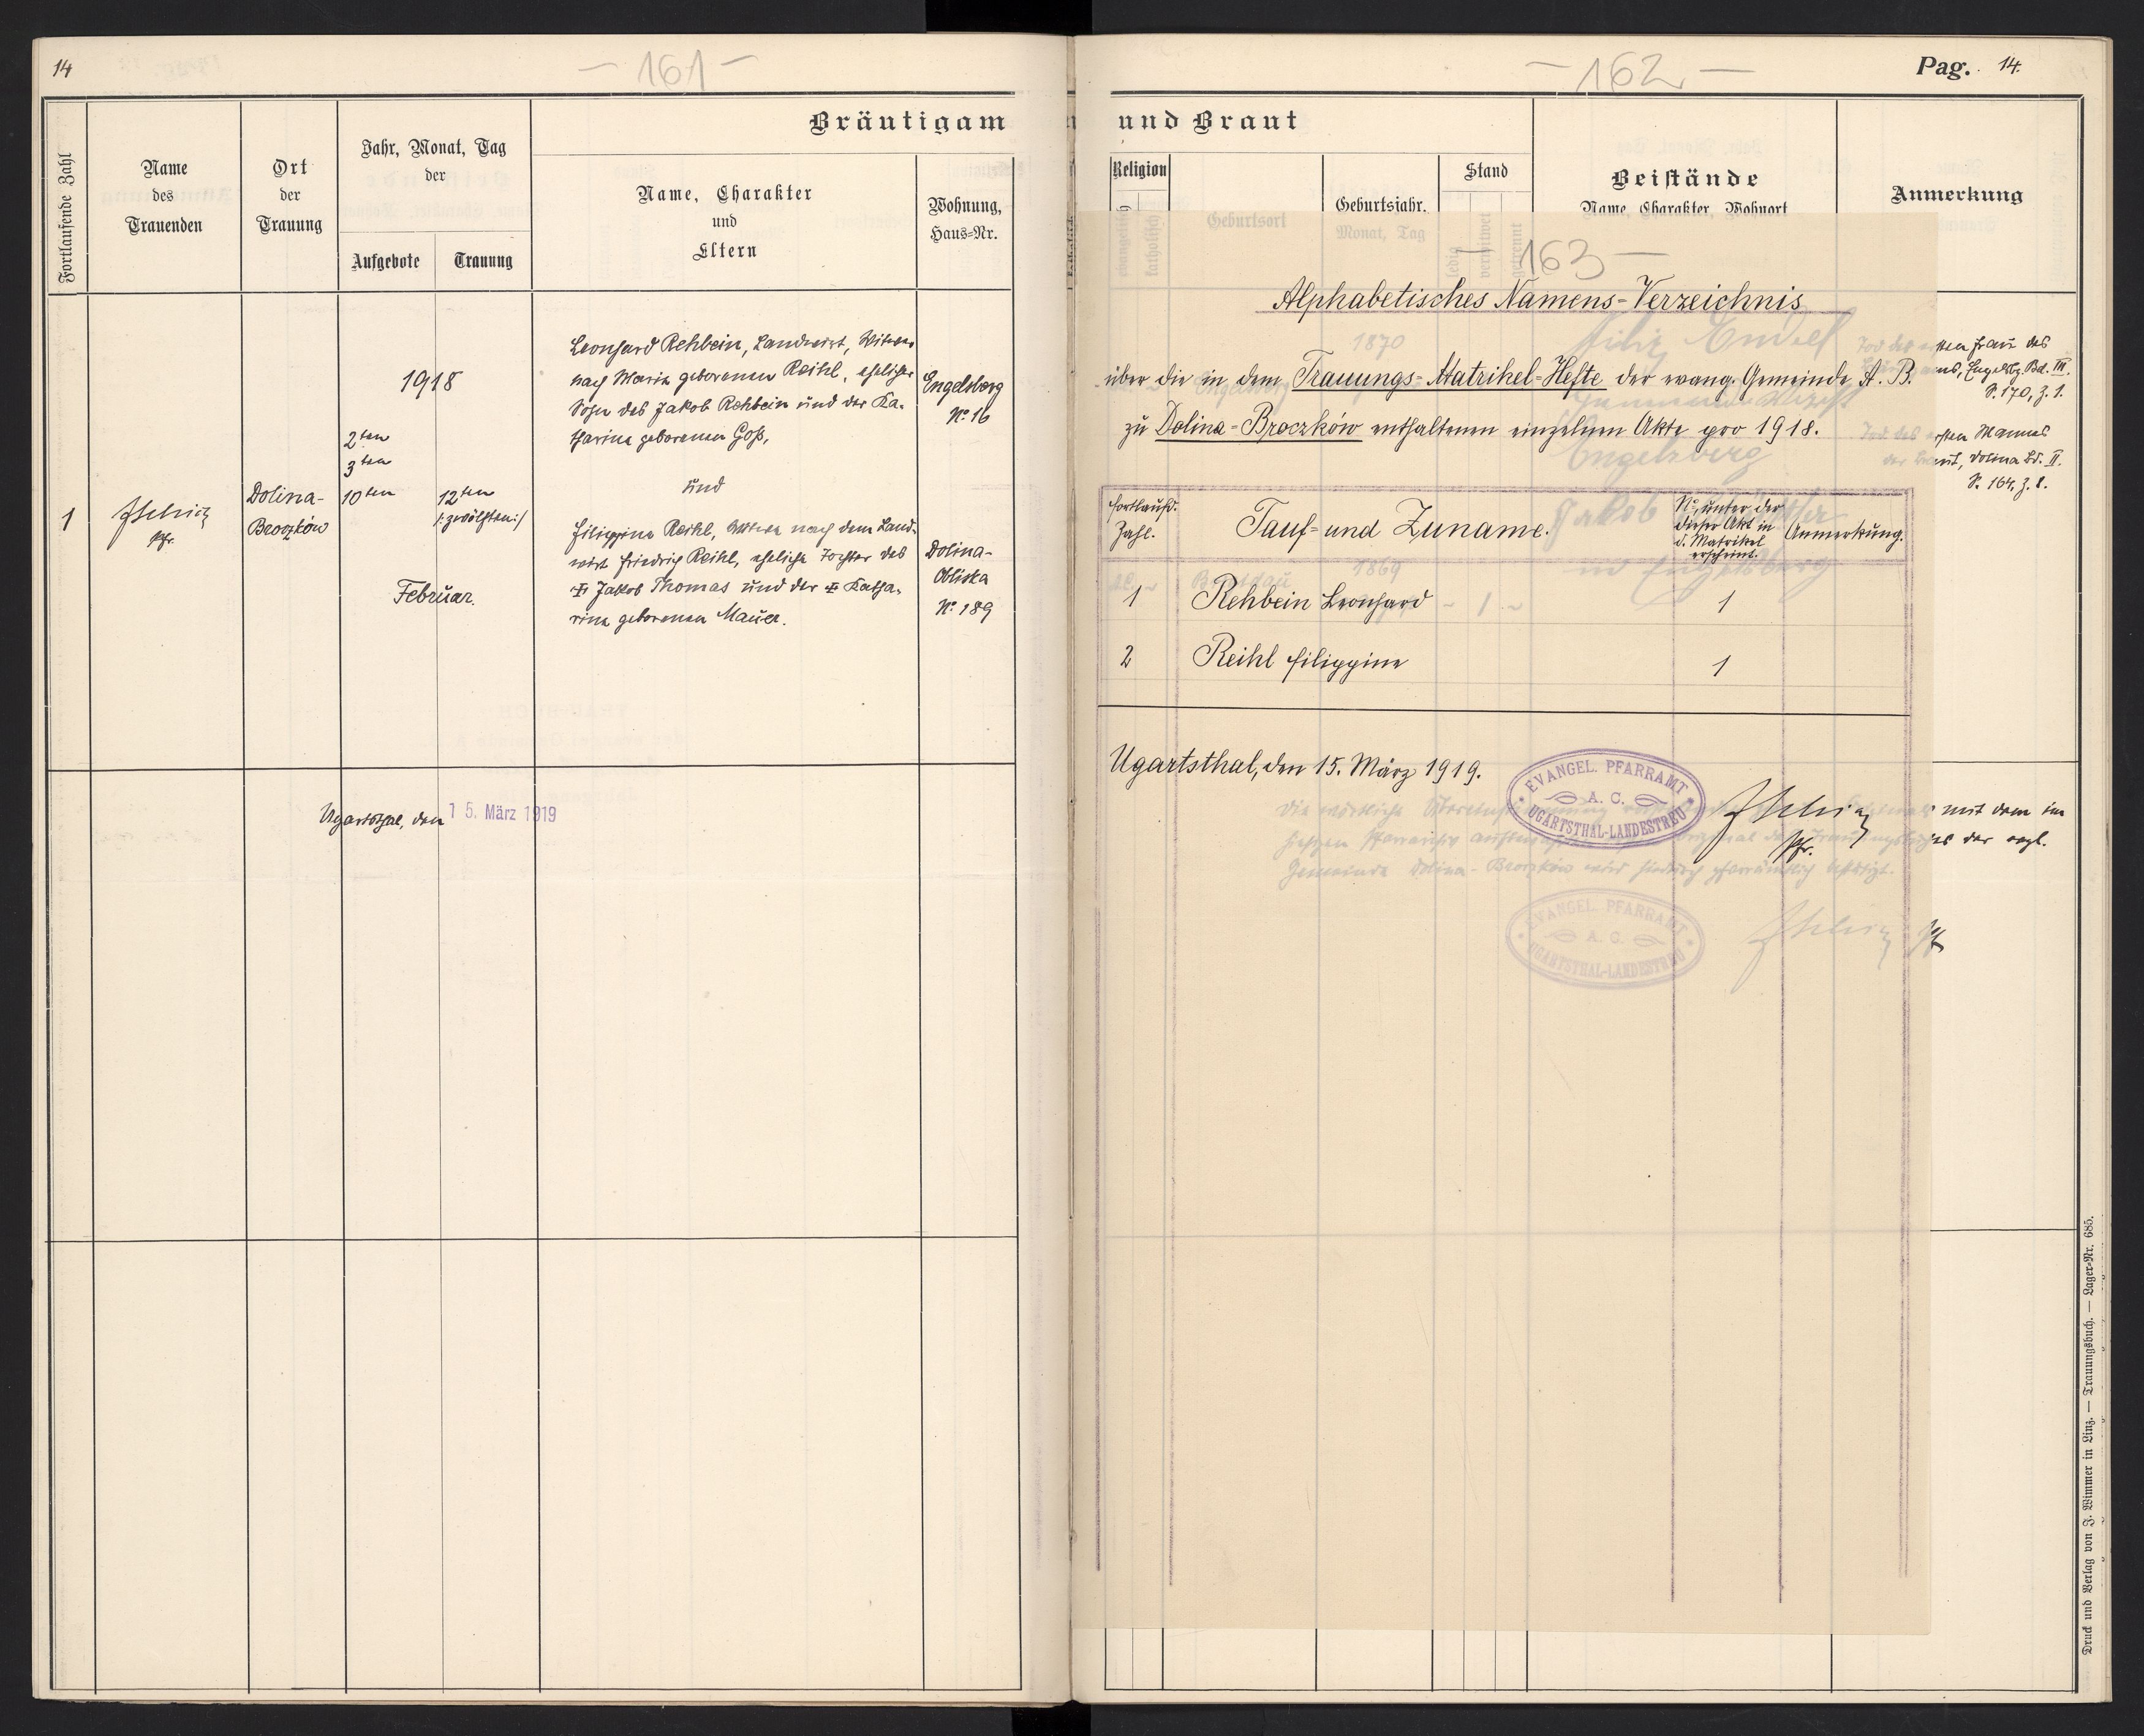 14
— 161 —
Fortlaufende Zahl
Name
des
Trauenden
Ort
der
Trauung
Jahr, Monat, Tag
der
Aufgebote
Trauung
Bräutigam
Name, Charakter
und
Eltern
Wohnung,
Haus-Nr.
1
Pfr.
Dolina-
Broczków
1918
2ten
3ten
10ten
12ten
/:zwölften:/
Februar.
Leonhard Rehbein, Landwirt, Witwer
nach Maria geborenen Reihl, ehelicher
Sohn des Jakob Rehbein und der Ka-
tharina geborenen Goß,
und
Filippine Reihl, Witwe nach dem Land-
wirt Friedrich Reihl, eheliche Tochter des
Jakob Thomas und der Katha-
rina geborenen Mauer.
Engelsberg
No 16
Dolina-
Obliska
No 189
Ugartsthal, den 15. März 1919
— 162 —
Pag. 14.
und Braut
Religion
evangelisch
katholisch
Geburtsort
Geburtsjahr,
Monat, Tag
Stand
ledig
verwitwet
getrennt
Beistände
Name, Charakter, Wohnort
Anmerkung
1870
Engelsberg
Jakob
1869
in Engelsberg
Tod der ersten Frau des
Engelsbg. Bd. III.
S. 170, Z. 1.
Tod des ersten Mannes
der Braut, Dolina Bd. II.
S. 164, Z. 8.
— 163 —
Alphabetisches Namens-Verzeichnis
über die in dem Trauungs-Matrikel-Hefte der evang. Gemeinde A. B.
zu Dolina-Broczków enthaltenen einzelnen Akte pro 1918.
fortlaufd.
Zahl.
Tauf- und Zuname.
No, unter der
dieser Akt in
d. Matrikel
erscheint.
Anmerkung.
1 Rehbein Leonhard 1
2 Reihl Filippine 1
Ugartsthal, den 15. März 1919.
EVANGEL. PFARRAMT
A. C.
UGARTSTHAL-LANDESTREU
Pfr.
Die wörtliche mit dem im
hiesigen Pfarrarchiv der evgl.
Gemeinde Dolina-Broczków wird hiedurch pfarrämtlich bestätigt.
EVANGEL. PFARRAMT
A. C.
UGARTSTHAL-LANDESTREU
Druck und Verlag von F. Wimmer in Linz. — Trauungsbuch. — Lager-Nr. 685.